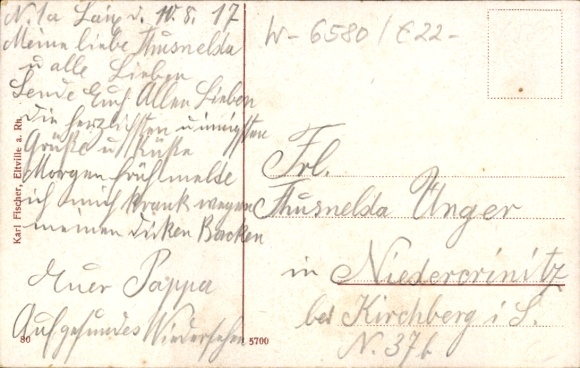 N. 1a Langd. 10. 8. 17
Meine liebe Thusnelda
u alle Lieben
Sende Euch Allen Lieben
die herzlichsten u innigsten
Grüße u Küße
Morgen früh melde
ich mich krank wegen
meinen dicken Backen
Euer Pappa
Auf gesundes Wiedersehen
Karl Fischer, Eltville a. Rh.
80
5700
W- 6580 / € 22-
Frl.
Thusnelda Unger
in Niedercrinitz
bei Kirchberg i. S.
N. 37b